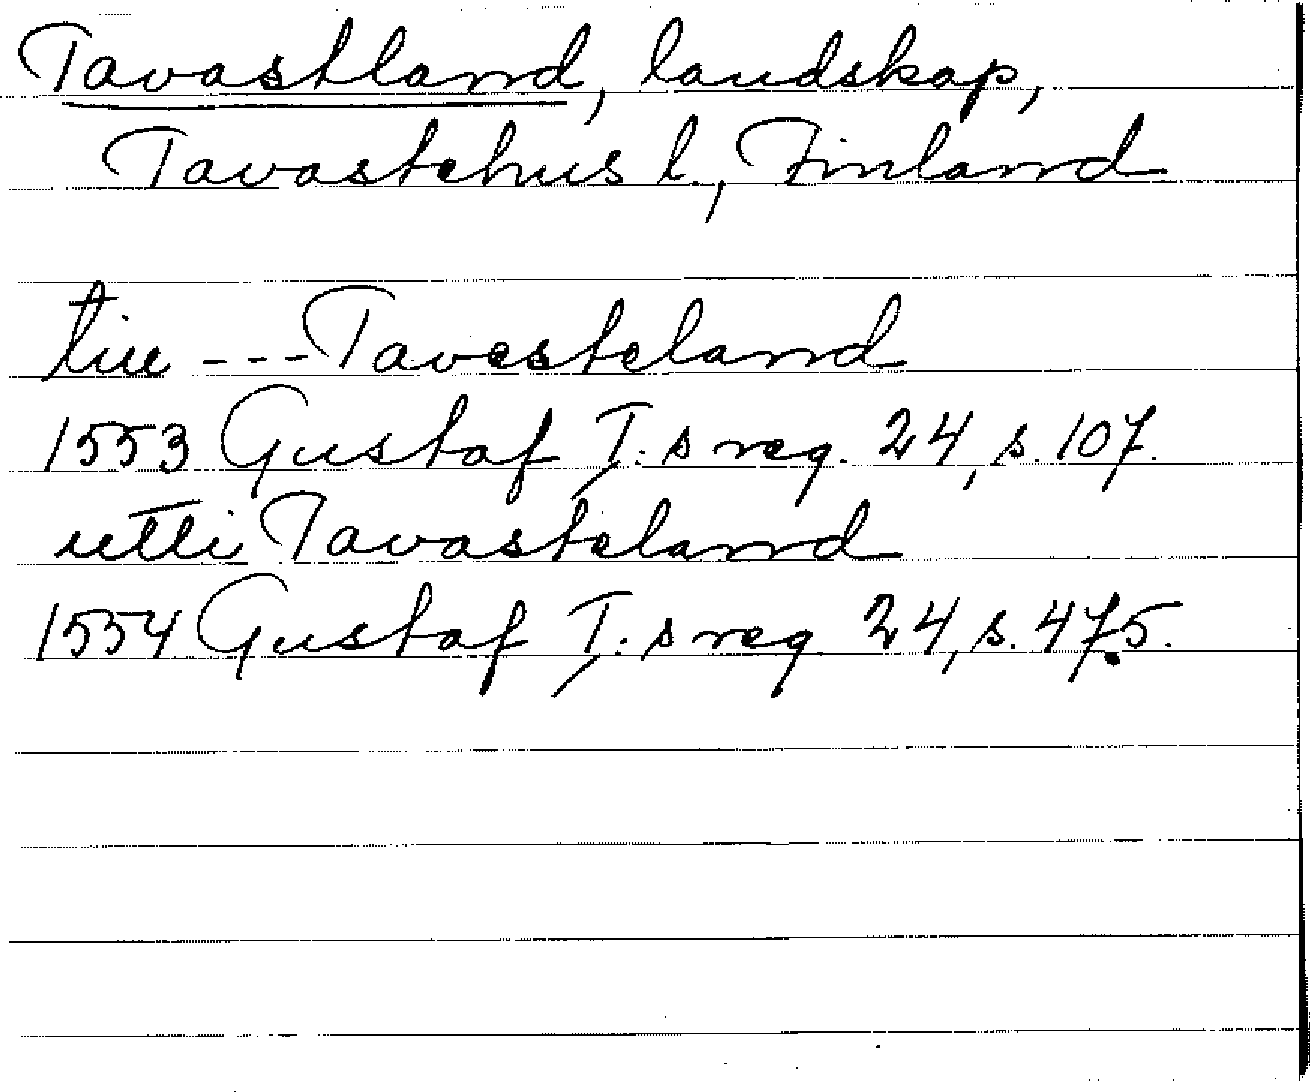 Tavastland, landskap,
Tavastehus l., Finland
till --- Tavesteland
1553 Gustaf I:s reg. 24, s. 107.
utti Tavasteland
1554 Gustaf I:s reg 24, s. 475.